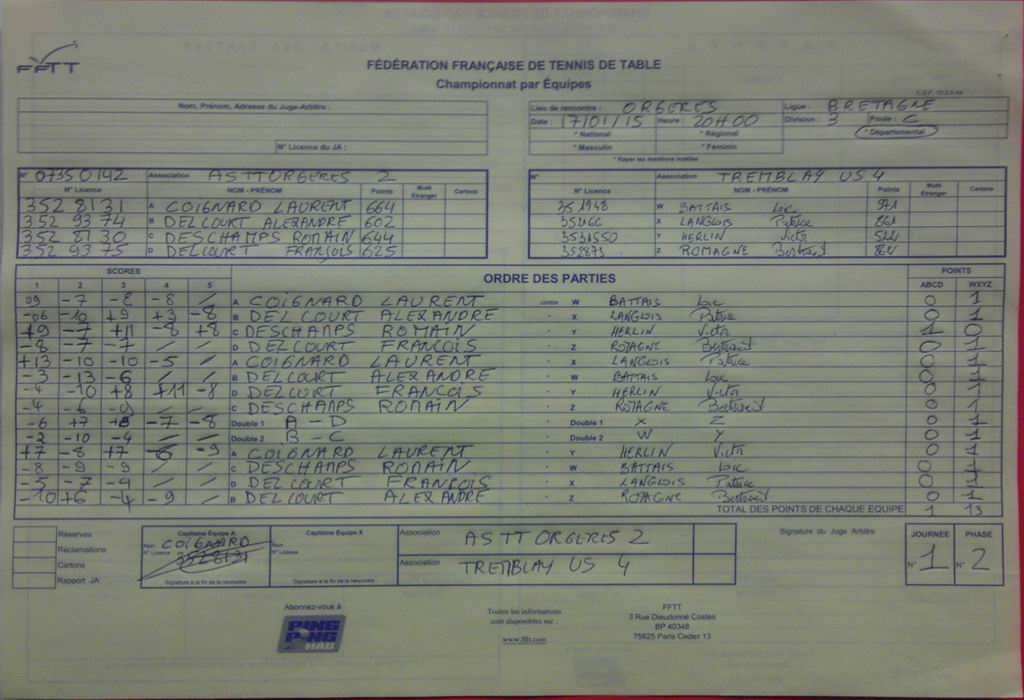 FFTT
FÉDÉRATION FRANÇAISE DE TENNIS DE TABLE
Championnat par Équipes
Nom, Prénom, Adresse du Juge-Arbitre :
N° Licence du JA :
Lieu de rencontre : ORGERES Ligue : BRETAGNE
Date : 17/01/15 Heure : 20H00 Division : 3 Poule : C
* National * Régional * Départemental
* Masculin * Féminin
* Rayer les mentions inutiles
N° 07350142 Association ASTTORGERES 2
N° Licence NOM - PRÉNOM Points Muté Etranger Cartons
352 8131 A COIGNARD LAURENT 664
352 93 74 B DELCOURT ALEXANDRE 602
352 8730 C DESCHAMPS ROMAIN 644
352 93 75 D DELCOURT FRANÇOIS 625
N° Association TREMBLAY US 4
N° Licence NOM - PRÉNOM Points Muté Etranger Cartons
W BATTAIS Loïc
X LANGLOIS Patrice
3531550 Y HERLIN Victor
352873 Z ROMAGNE Bertrand
SCORES ORDRE DES PARTIES POINTS
1 2 3 4 5 ABCD WXYZ
-7 -8 -8 / A COIGNARD LAURENT contre W BATTAIS Loïc 0 1
-06 -10 +9 +3 -8 B DELCOURT ALEXANDRE X LANGLOIS Patrice 0 1
+9 -7 +11 -8 +8 C DESCHAMPS ROMAIN Y HERLIN Victor 1 0
-8 -7 -7 / / D DELCOURT FRANCOIS Z ROMAGNE Bertrand 0 1
+13 -10 -10 -5 / A COIGNARD LAURENT X LANGLOIS Patrice 0 1
-3 -13 -6 / / B DELCOURT ALEXANDRE W BATTAIS Loïc 0 1
-4 -10 +8 +11 -8 D DELCOURT FRANCOIS Y HERLIN Victor 0 1
-4 -6 / / C DESCHAMPS ROMAIN Z ROMAGNE Bertrand 0 1
-6 +7 +8 -7 -8 Double 1 A - D Double 1 X Z 0 1
-2 -10 -4 / / Double 2 B - C Double 2 W Y 0 1
+7 -8 +7 -6 -9 A COIGNARD LAURENT Y HERLIN Victor 0 1
-8 -9 -9 / / C DESCHAMPS ROMAIN W BATTAIS Loïc 0 1
-5 -7 -4 / / D DELCOURT FRANÇOIS X LANGLOIS Patrice 0 1
-10 +6 -4 -9 / B DELCOURT ALEXANDRE Z ROMAGNE Bertrand 0 1
TOTAL DES POINTS DE CHAQUE EQUIPE 1 13
Réserves
Réclamations
Cartons
Rapport JA
Capitaine Equipe A
Nom COIGNARD
N° Licence 3528131
Signature à la fin de la rencontre
Capitaine Equipe X
Nom
N° Licence
Signature à la fin de la rencontre
Association ASTTORGERES 2
Association TREMBLAY US 4
Signature du Juge Arbitre
JOURNEE PHASE
N° 1 N° 2
Abonnez-vous à
PING PONG MAG
Toutes les informations
sont disponibles sur :
www.fftt.com
FFTT
3 Rue Dieudonné Costes
BP 40348
75625 Paris Cedex 13